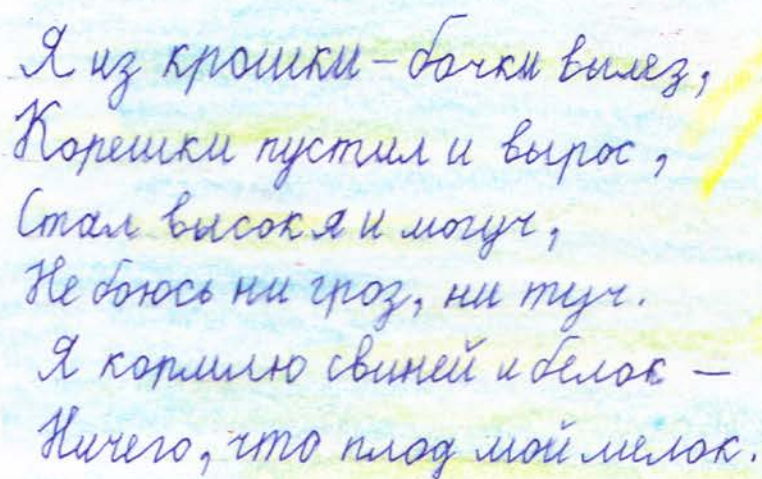 Я из крошки – бочки вылез,
Корешки пустил и вырос,
Стал высок я и могуч,
Не боюсь ни гроз, ни туч.
Я кормлю свиней и белок –
Ничего, что плод мой мелок.